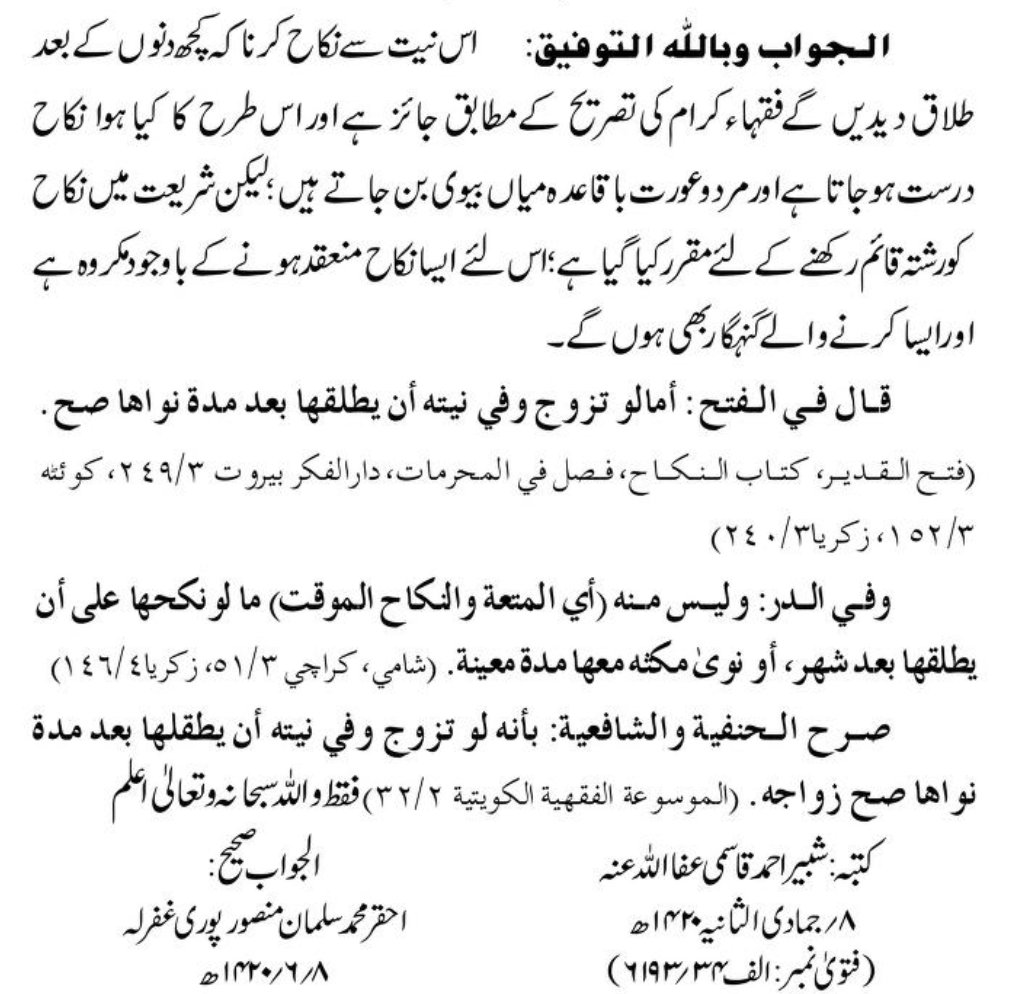 الجواب وبالله التوفيق: اس نیت سے نکاح کرنا کہ کچھ دنوں کے بعد
طلاق دیدیں گے فقہاء کرام کی تصریح کے مطابق جائز ہے اور اس طرح کا کیا ہوا نکاح
درست ہو جاتا ہے اور مرد و عورت با قاعدہ میاں بیوی بن جاتے ہیں؛ لیکن شریعت میں نکاح
کو رشتہ قائم رکھنے کے لئے مقرر کیا گیا ہے؛ اس لئے ایسا نکاح منعقد ہونے کے باوجود مکروہ ہے
اور ایسا کرنے والے گنہگار بھی ہوں گے۔
قال في الفتح: أما لو تزوج وفي نيته أن يطلقها بعد مدة نواها صح.
(فتح القدير، كتاب النكاح، فصل في المحرمات، دارالفكر بيروت ٢٤٩/٣، كوئٹه
١٥٢/٣، زكريا ٢٤٠/٣)
وفي الدر: وليس منه (أي المتعة والنكاح الموقت) ما لو نكحها على أن
يطلقها بعد شهر، أو نوىٰ مكثه معها مدة معينة. (شامي، كراچي ٥١/٣، زكريا ١٤٦/٤)
صرح الحنفية والشافعية: بأنه لو تزوج وفي نيته أن يطقلها بعد مدة
نواها صح زواجه. (الموسوعة الفقهية الكويتية ٣٢/٢) فقط واللہ سبحانہ وتعالیٰ اعلم
کتبہ: شبیر احمد قاسمی عفا اللہ عنہ
۸؍ جمادی الثانیہ ۱۴۲۰ھ
(فتویٰ نمبر: الف ۶۱۹۳/۳۴)
الجواب صحیح:
احقر محمد سلمان منصور پوری غفر لہ
۱۴۲۰/۶/۸ھ